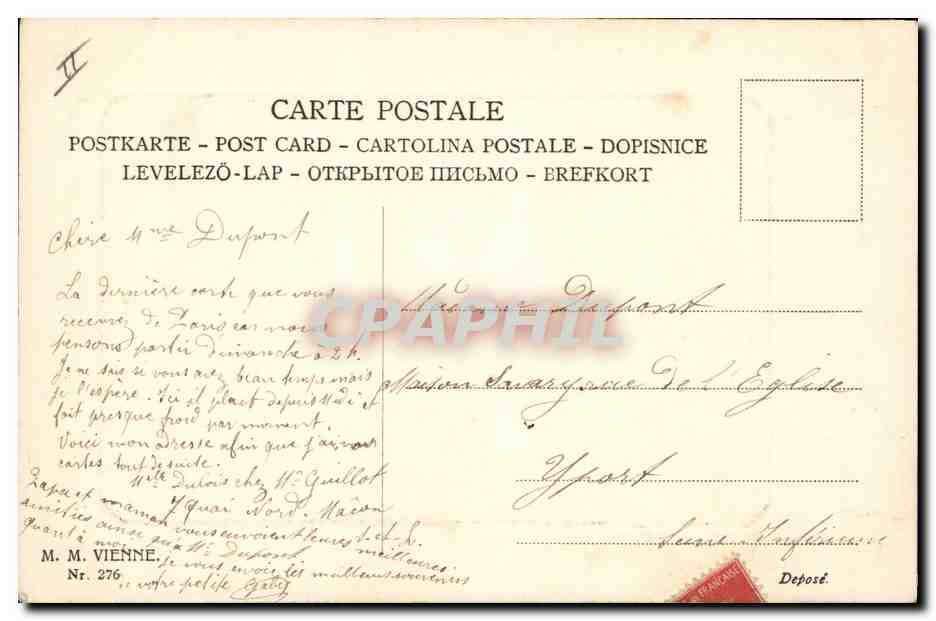 II
CARTE POSTALE
POSTKARTE – POST CARD – CARTOLINA POSTALE – DOPISNICE
LEVELEZŐ-LAP – ОТКРЫТОЕ ПИСЬМО – BREFKORT
Chère Mme Dupont
La dernière carte que vous
recevrez de Paris car nous
pensons partir Dimanche à 2 h.
Je ne sais si vous avez beau temps mais
je l'espère. Ici il pleut depuis Midi et
fait presque froid par moment.
Voici mon adresse afin que j'ai vos
cartes tout de suite.
Mlle Dubois chez Mr Guillot
7 Quai Nord. Mâcon
S-et-L.
Papa et maman vous envoient leurs meilleures
amitiés ainsi qu'à Mr Dupont
quant à moi je vous envoie les meilleurs souvenirs
de votre petite Gaby
M. M. VIENNE.
Nr. 276
Madame Dupont
Maison Savary rue de l'Eglise
Yport
Seine Inférieure
Deposé.
FRANÇAISE
CPAPHIL